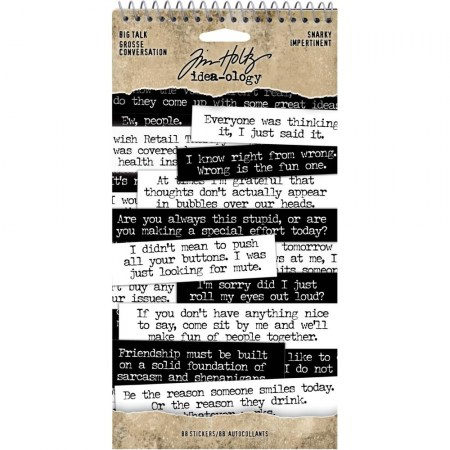 BIG TALK
GROSSE
CONVERSATION
Tim Holtz
idea-ology
SNARKY
IMPERTINENT
do they come up with some great ideas
Ew, people.
Everyone was thinking
it, I just said it.
wish Retail
was covered
health ins
I know right from wrong.
Wrong is the fun one.
It's
I wou
At times I'm grateful that
thoughts don't actually appear
in bubbles over our heads.
Are you always this stupid, or are
you making a special effort today?
I didn't mean to push
all your buttons. I was
just looking for mute.
tomorrow
ys at me, I
its someone
t buy any
ur issues.
I'm sorry did I just
roll my eyes out loud?
If you don't have anything nice
to say, come sit by me and we'll
make fun of people together.
Friendship must be built
on a solid foundation of
sarcasm and shenanigans.
like to
I do not
Be the reason someone smiles today.
Or the reason they drink.
Whatever works.
88 STICKERS/88 AUTOCOLLANTS